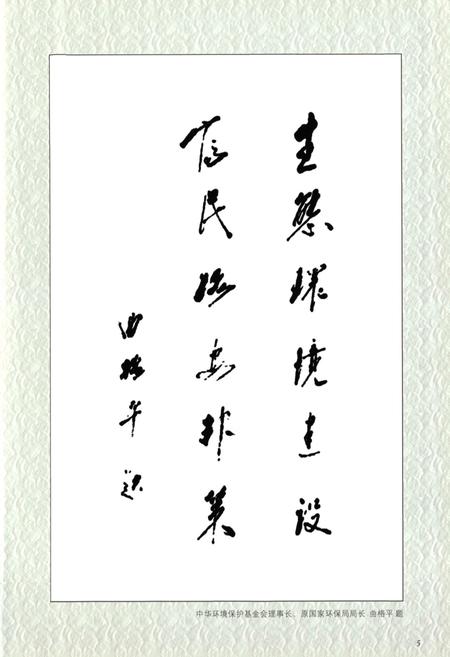 环境建设
民 策
曲格平 题
中华环境保护基金会理事长、原国家环保局局长 曲格平 题
5